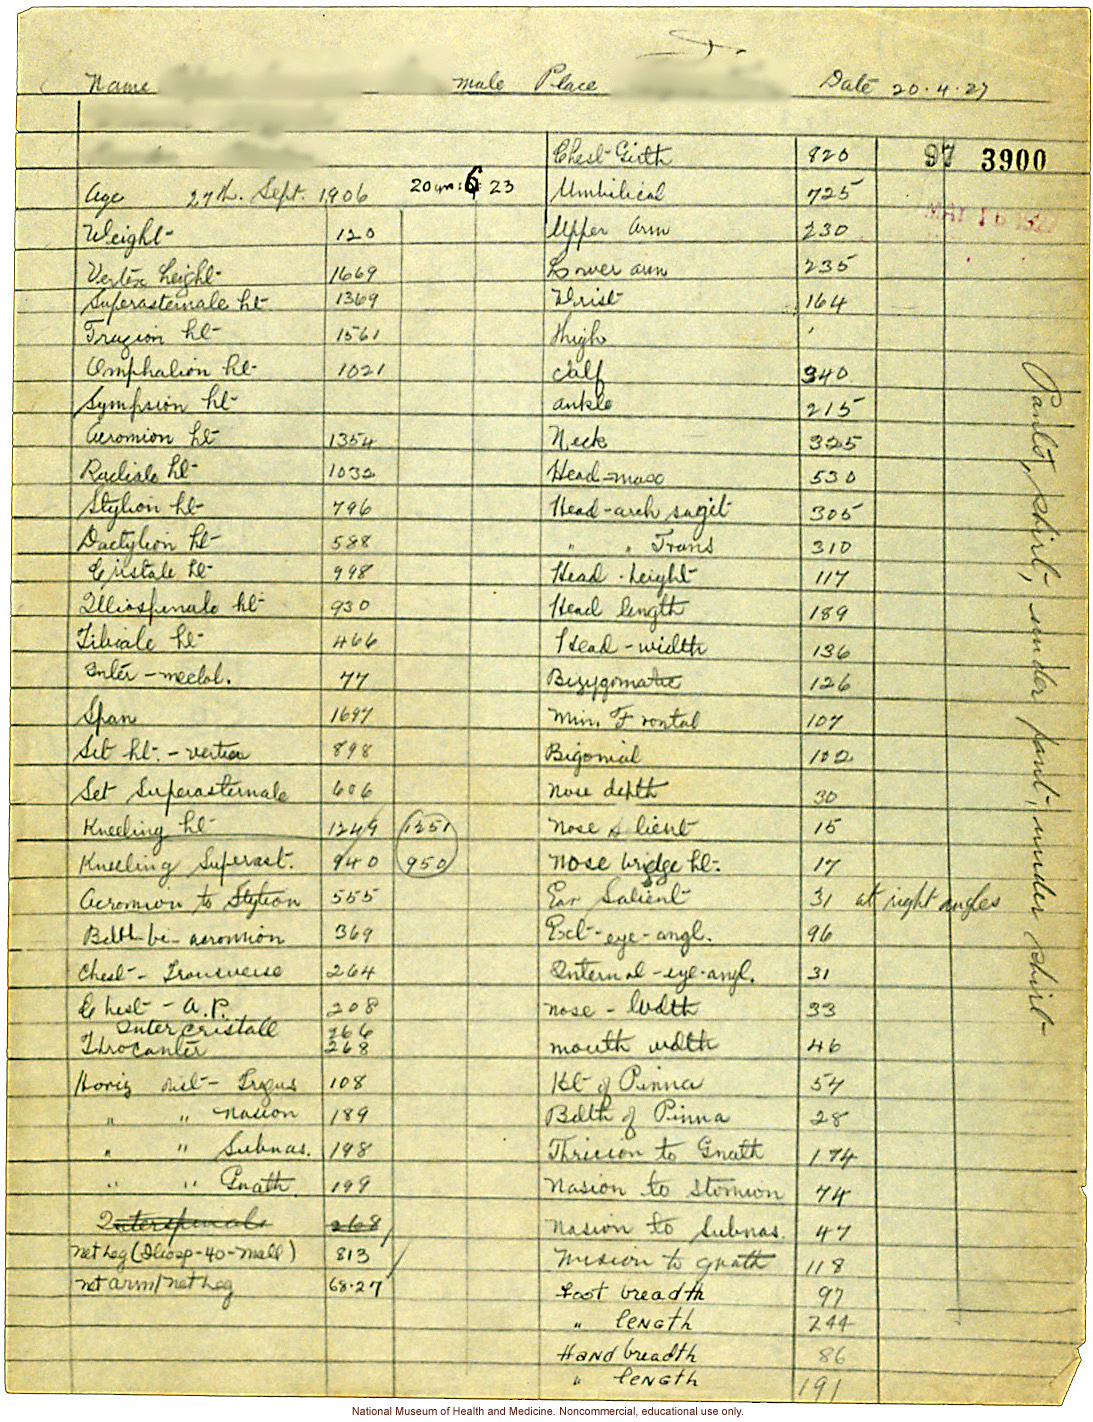 Name male Place Date 20.4.27
Age 27th. Sept. 1906 20 yrs: 6: 23
Weight 120
Vertex height 1669
Superasternale ht 1369
Tragion ht 1561
Omphalion ht 1021
Sympsion ht
Acromion ht 1354
Radiale ht 1032
Stylion ht 796
Dactylion ht 588
Cristale ht 998
Illiospinale ht 930
Tibiale ht 466
Inter-meelol. 77
Span 1697
Sit ht. - vertex 898
Set Superasternale 606
Kneeling ht 1249 1251
Kneeling Superast. 940 950
Acromion to Stylion 555
Bdth bi-acromion 369
Chest - Transverse 264
Chest - A.P. 208
Intercristall 266
Throcanter 268
Horiz dist - Tragus 108
" " nasion 189
" " Subnas. 198
" " Gnath. 199
Interspinals 268
net Leg (Iliosp-40-Mall) 813
net arm/net Leg 68.27
97 3900
MAY 16 1927
Chest Girth 820
Umbilical 725
Upper Arm 230
Lower arm 235
Wrist 164
Thigh
Calf 340
ankle 215
Neck 325
Head-max 530
Head-arch sagit 305
" " Trans 310
Head-height 117
Head length 189
Head-width 136
Bizygomatic 126
Min. Frontal 107
Bigonial 102
Nose depth 30
Nose salient 15
Nose bridge ht. 17
Ear Salient 31 at right angles
Ext-eye-angl. 96
Internal-eye-angl. 31
nose-Width 33
mouth width 46
Ht of Pinna 54
Bdth of Pinna 28
Thricion to Gnath 174
Nasion to Stomion 74
Nasion to Subnas. 47
Nasion to gnath 118
Foot breadth 97
" LENGTH 244
HAND breadth 86
" LENGTH 191
Pants, shirt, under pant, under shirt
National Museum of Health and Medicine. Noncommercial, educational use only.